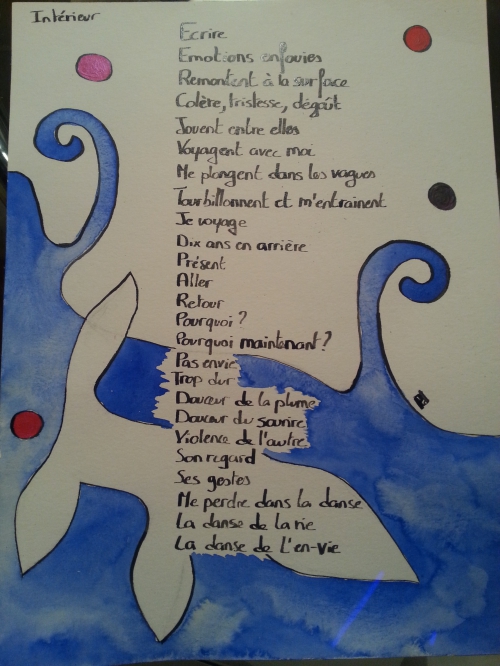 Intérieur
Ecrire
Emotions enfouies
Remontent à la surface
Colère, tristesse, dégoût
Jouent entre elles
Voyagent avec moi
Me plongent dans les vagues
Tourbillonnent et m'entrainent
Je voyage
Dix ans en arrière
Présent
Aller
Retour
Pourquoi ?
Pourquoi maintenant ?
Pas envie
Trop dur
Douceur de la plume
Douceur du sourire
Violence de l'autre
Son regard
Ses gestes
Me perdre dans la danse
La danse de la vie
La danse de L'en-vie